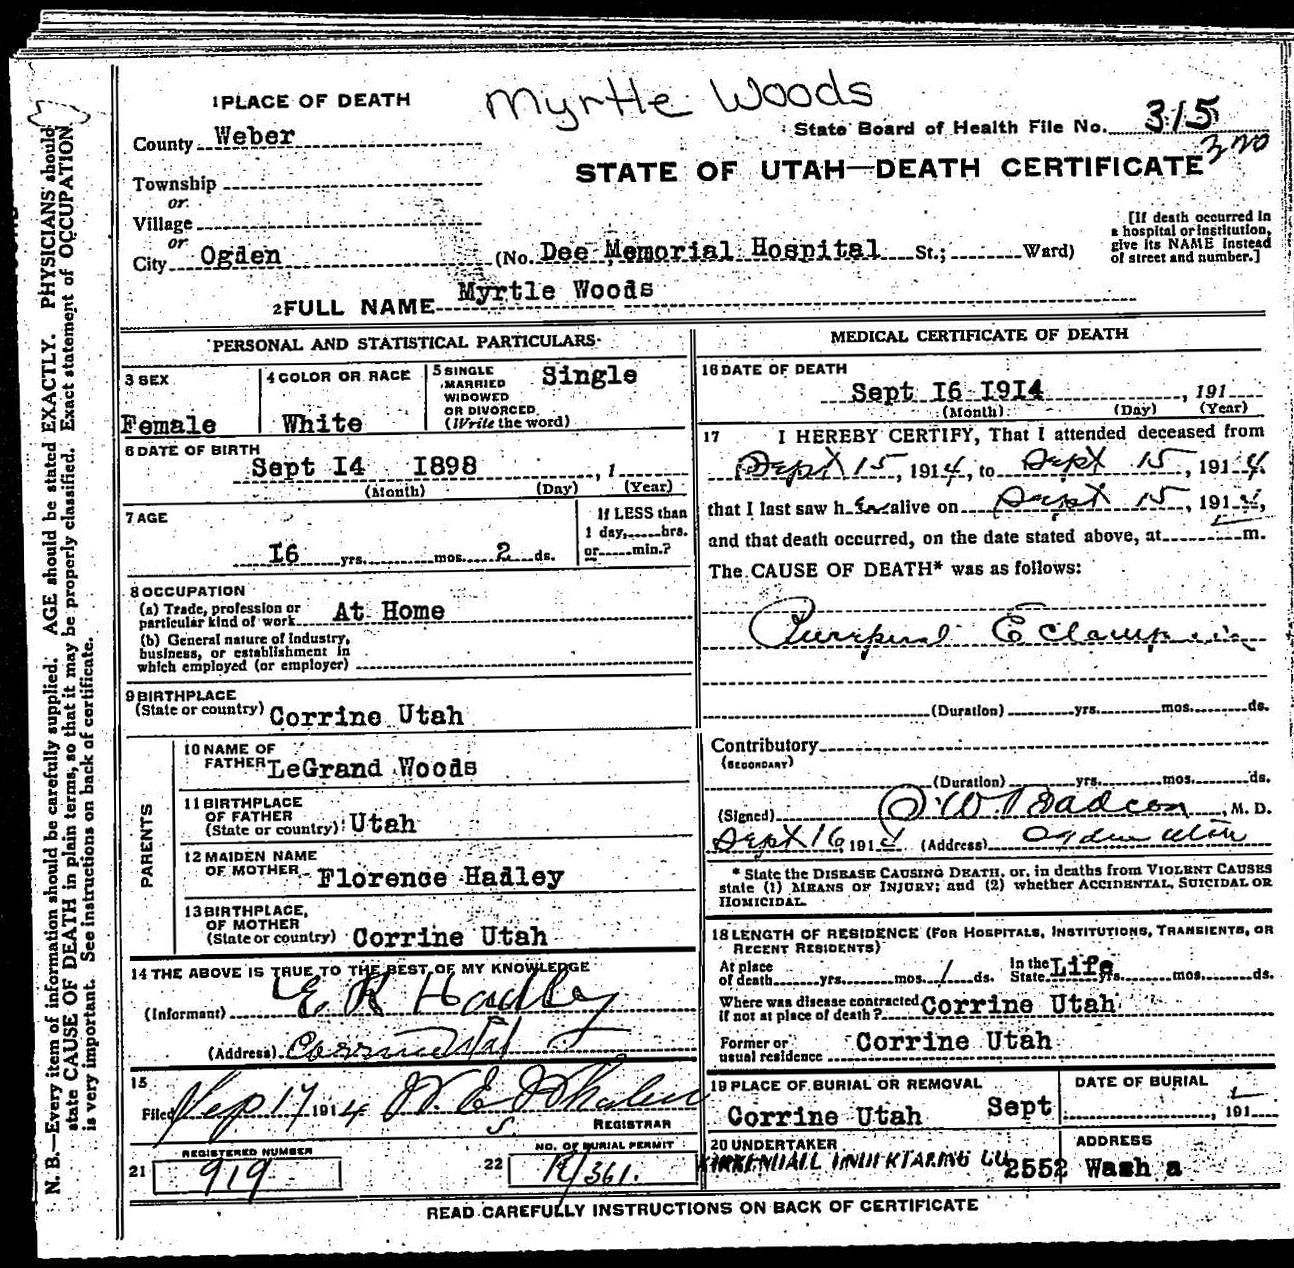 Myrtle Woods
1 PLACE OF DEATH
State Board of Health File No. 315
320
County Weber
STATE OF UTAH—DEATH CERTIFICATE
Township
or
Village
or
City Ogden (No. Dee Memorial Hospital St.; Ward)
[If death occurred in
a hospital or institution,
give its NAME instead
of street and number.]
2 FULL NAME Myrtle Woods
PERSONAL AND STATISTICAL PARTICULARS
3 SEX
Female
4 COLOR OR RACE
White
5 SINGLE
MARRIED
WIDOWED
OR DIVORCED
(Write the word)
Single
6 DATE OF BIRTH
Sept I4 I898, 1
(Month) (Day) (Year)
7 AGE
I6 yrs. mos. 2 ds.
If LESS than
1 day, hrs.
or min.?
8 OCCUPATION
(a) Trade, profession or
particular kind of work At Home
(b) General nature of industry,
business, or establishment in
which employed (or employer)
9 BIRTHPLACE
(State or country) Corrine Utah
PARENTS
10 NAME OF
FATHER LeGrand Woods
11 BIRTHPLACE
OF FATHER
(State or country) Utah
12 MAIDEN NAME
OF MOTHER Florence Hadley
13 BIRTHPLACE,
OF MOTHER
(State or country) Corrine Utah
14 THE ABOVE IS TRUE TO THE BEST OF MY KNOWLEDGE
(Informant) L E R Hadley
(Address) Corrine Utah
15
Filed Sep 17 1914
REGISTRAR
REGISTERED NUMBER
21 919
NO. OF BURIAL PERMIT
22 361.
MEDICAL CERTIFICATE OF DEATH
16 DATE OF DEATH
Sept I6 I9I4, 191
(Month) (Day) (Year)
17 I HEREBY CERTIFY, That I attended deceased from
Sept 15, 1914, to Sept 15, 1914,
that I last saw h er alive on Sept 15, 1914,
and that death occurred, on the date stated above, at m.
The CAUSE OF DEATH* was as follows:
Puerpural Eclampsia
(Duration) yrs. mos. ds.
Contributory
(SECONDARY)
(Duration) yrs. mos. ds.
(Signed), M. D.
Sept 16 1914 (Address) Ogden Utah
* State the DISEASE CAUSING DEATH, or, in deaths from VIOLENT CAUSES
state (1) MEANS OF INJURY; and (2) whether ACCIDENTAL, SUICIDAL OR
HOMICIDAL.
18 LENGTH OF RESIDENCE (FOR HOSPITALS, INSTITUTIONS, TRANSIENTS, OR
RECENT RESIDENTS)
At place
of death yrs. mos. 1 ds.
In the
State Life yrs. mos. ds.
Where was disease contracted
if not at place of death? Corrine Utah
Former or
usual residence Corrine Utah
19 PLACE OF BURIAL OR REMOVAL
Corrine Utah
DATE OF BURIAL
Sept, 191
20 UNDERTAKER
KIRKENDALL UNDERTAKING CO
ADDRESS
2552 Wash a
READ CAREFULLY INSTRUCTIONS ON BACK OF CERTIFICATE
N. B.—Every item of information should be carefully supplied. AGE should be stated EXACTLY. PHYSICIANS should
state CAUSE OF DEATH in plain terms, so that it may be properly classified. Exact statement of OCCUPATION
is very important. See instructions on back of certificate.